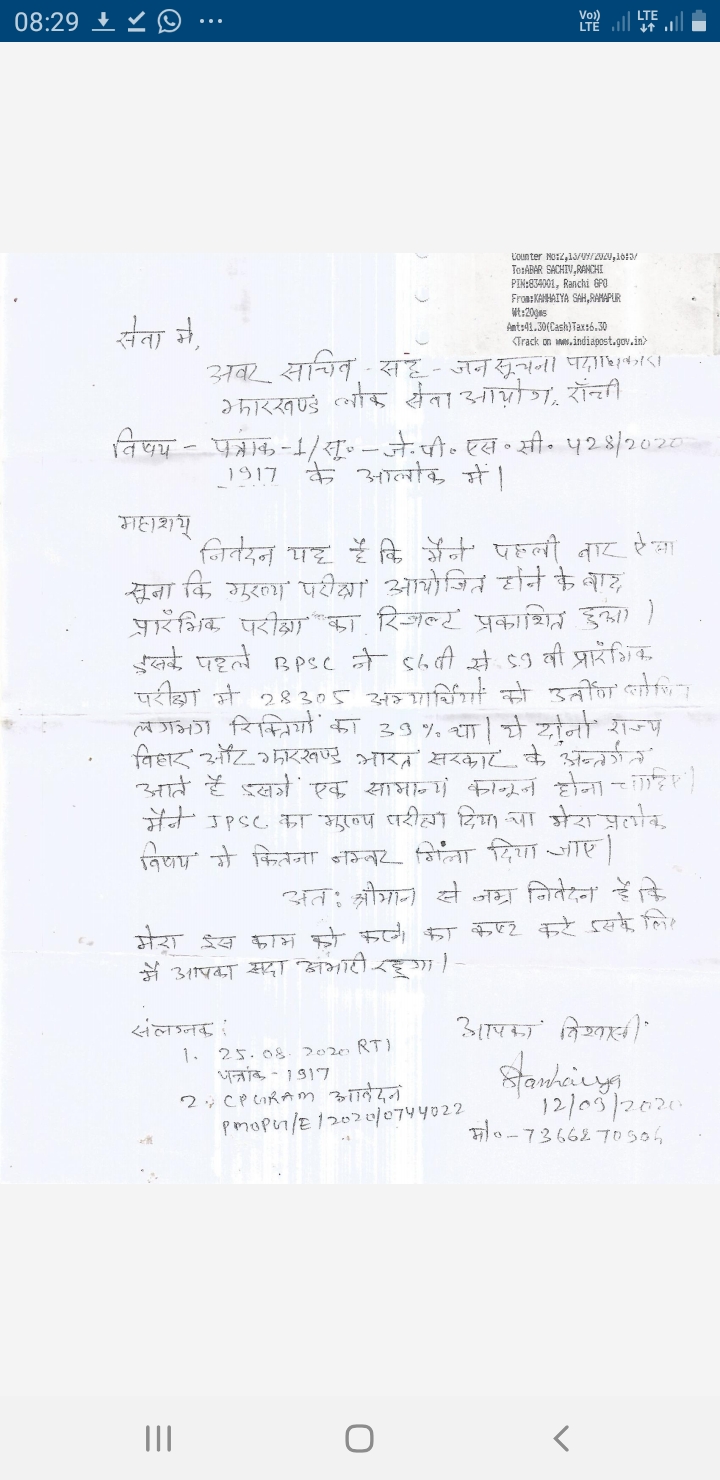 08:29
Vo)) LTE LTE
Counter No:2,13/09/2020,16:57
To:ABAR SACHIV,RANCHI
PIN:834001, Ranchi GPO
From:KANHAIYA SAH,RAMAPUR
Wt:20gms
Amt:41.30(Cash)Tax:6.30
<Track on www.indiapost.gov.in>
सेवा में,
अवर सचिव - सह - जन सूचना पदाधिकारी
झारखण्ड लोक सेवा आयोग, राँची
विषय - पत्रांक-1/सू॰-जे.पी.एस.सी. 428/2020
1917 के आलोक में।
महाशय
निवेदन यह है कि मैंने पहली बार ऐसा
सूना कि मुख्य परीक्षा आयोजित होने के बाद
प्रारंभिक परीक्षा का रिजल्ट प्रकाशित हुआ।
इसके पहले BPSC ने 56वी से 59 वी प्रारंभिक
परीक्षा में 28305 अभ्यार्थियों को उत्तीर्ण
लगभग रिक्तियों का 39% था। ये दोनो राज्य
विहार और झारखण्ड भारत सरकार के अन्तर्गत
आते हैं इसमें एक सामान्य कानून होना चाहिए।
मैंने JPSC का मुख्य परीक्षा दिया था मेरा प्रत्येक
विषय में कितना नम्बर मिला दिया जाए।
अत: श्रीमान से नम्र निवेदन है कि
मेरा इस काम को करने का कष्ट करे इसके लिए
मैं आपका सदा अभारी रहूगा।
संलग्नक: आपका विश्वासी:
1. 25.08.2020 RTI
पत्रांक-1917 Kanhaiya
2. CPGRAM आवेदन 12/09/2020
PMOPG/E/2020/0744022
मो०-7366270906